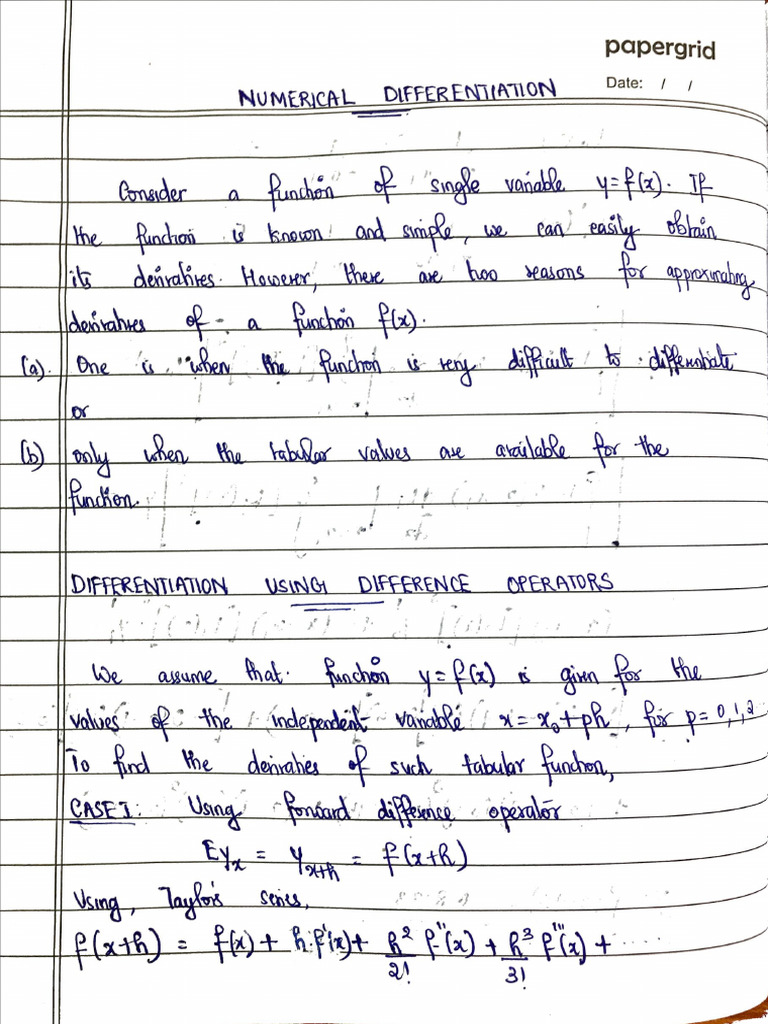 papergrid
Date: / /
NUMERICAL DIFFERENTIATION
Consider a function of single variable y=f(x). If
the function is known and simple, we can easily obtain
its derivatives. However, there are two reasons for approximating
derivatives of a function f(x).
(a). One is when the function is very difficult to differentiate
or
(b) only when the tabular values are available for the
function.
DIFFERENTIATION USING DIFFERENCE OPERATORS
We assume that function y=f(x) is given for the
values of the independent variable x = x₀+ph, for p=0,1,2
To find the derivatives of such tabular function,
CASE I: Using forward difference operator
Ey_x = y_{x+h} = f(x+h)
Using, Taylor's series,
f(x+h) = f(x) + h.f'(x) + h²/2! f''(x) + h³/3! f'''(x) + ....